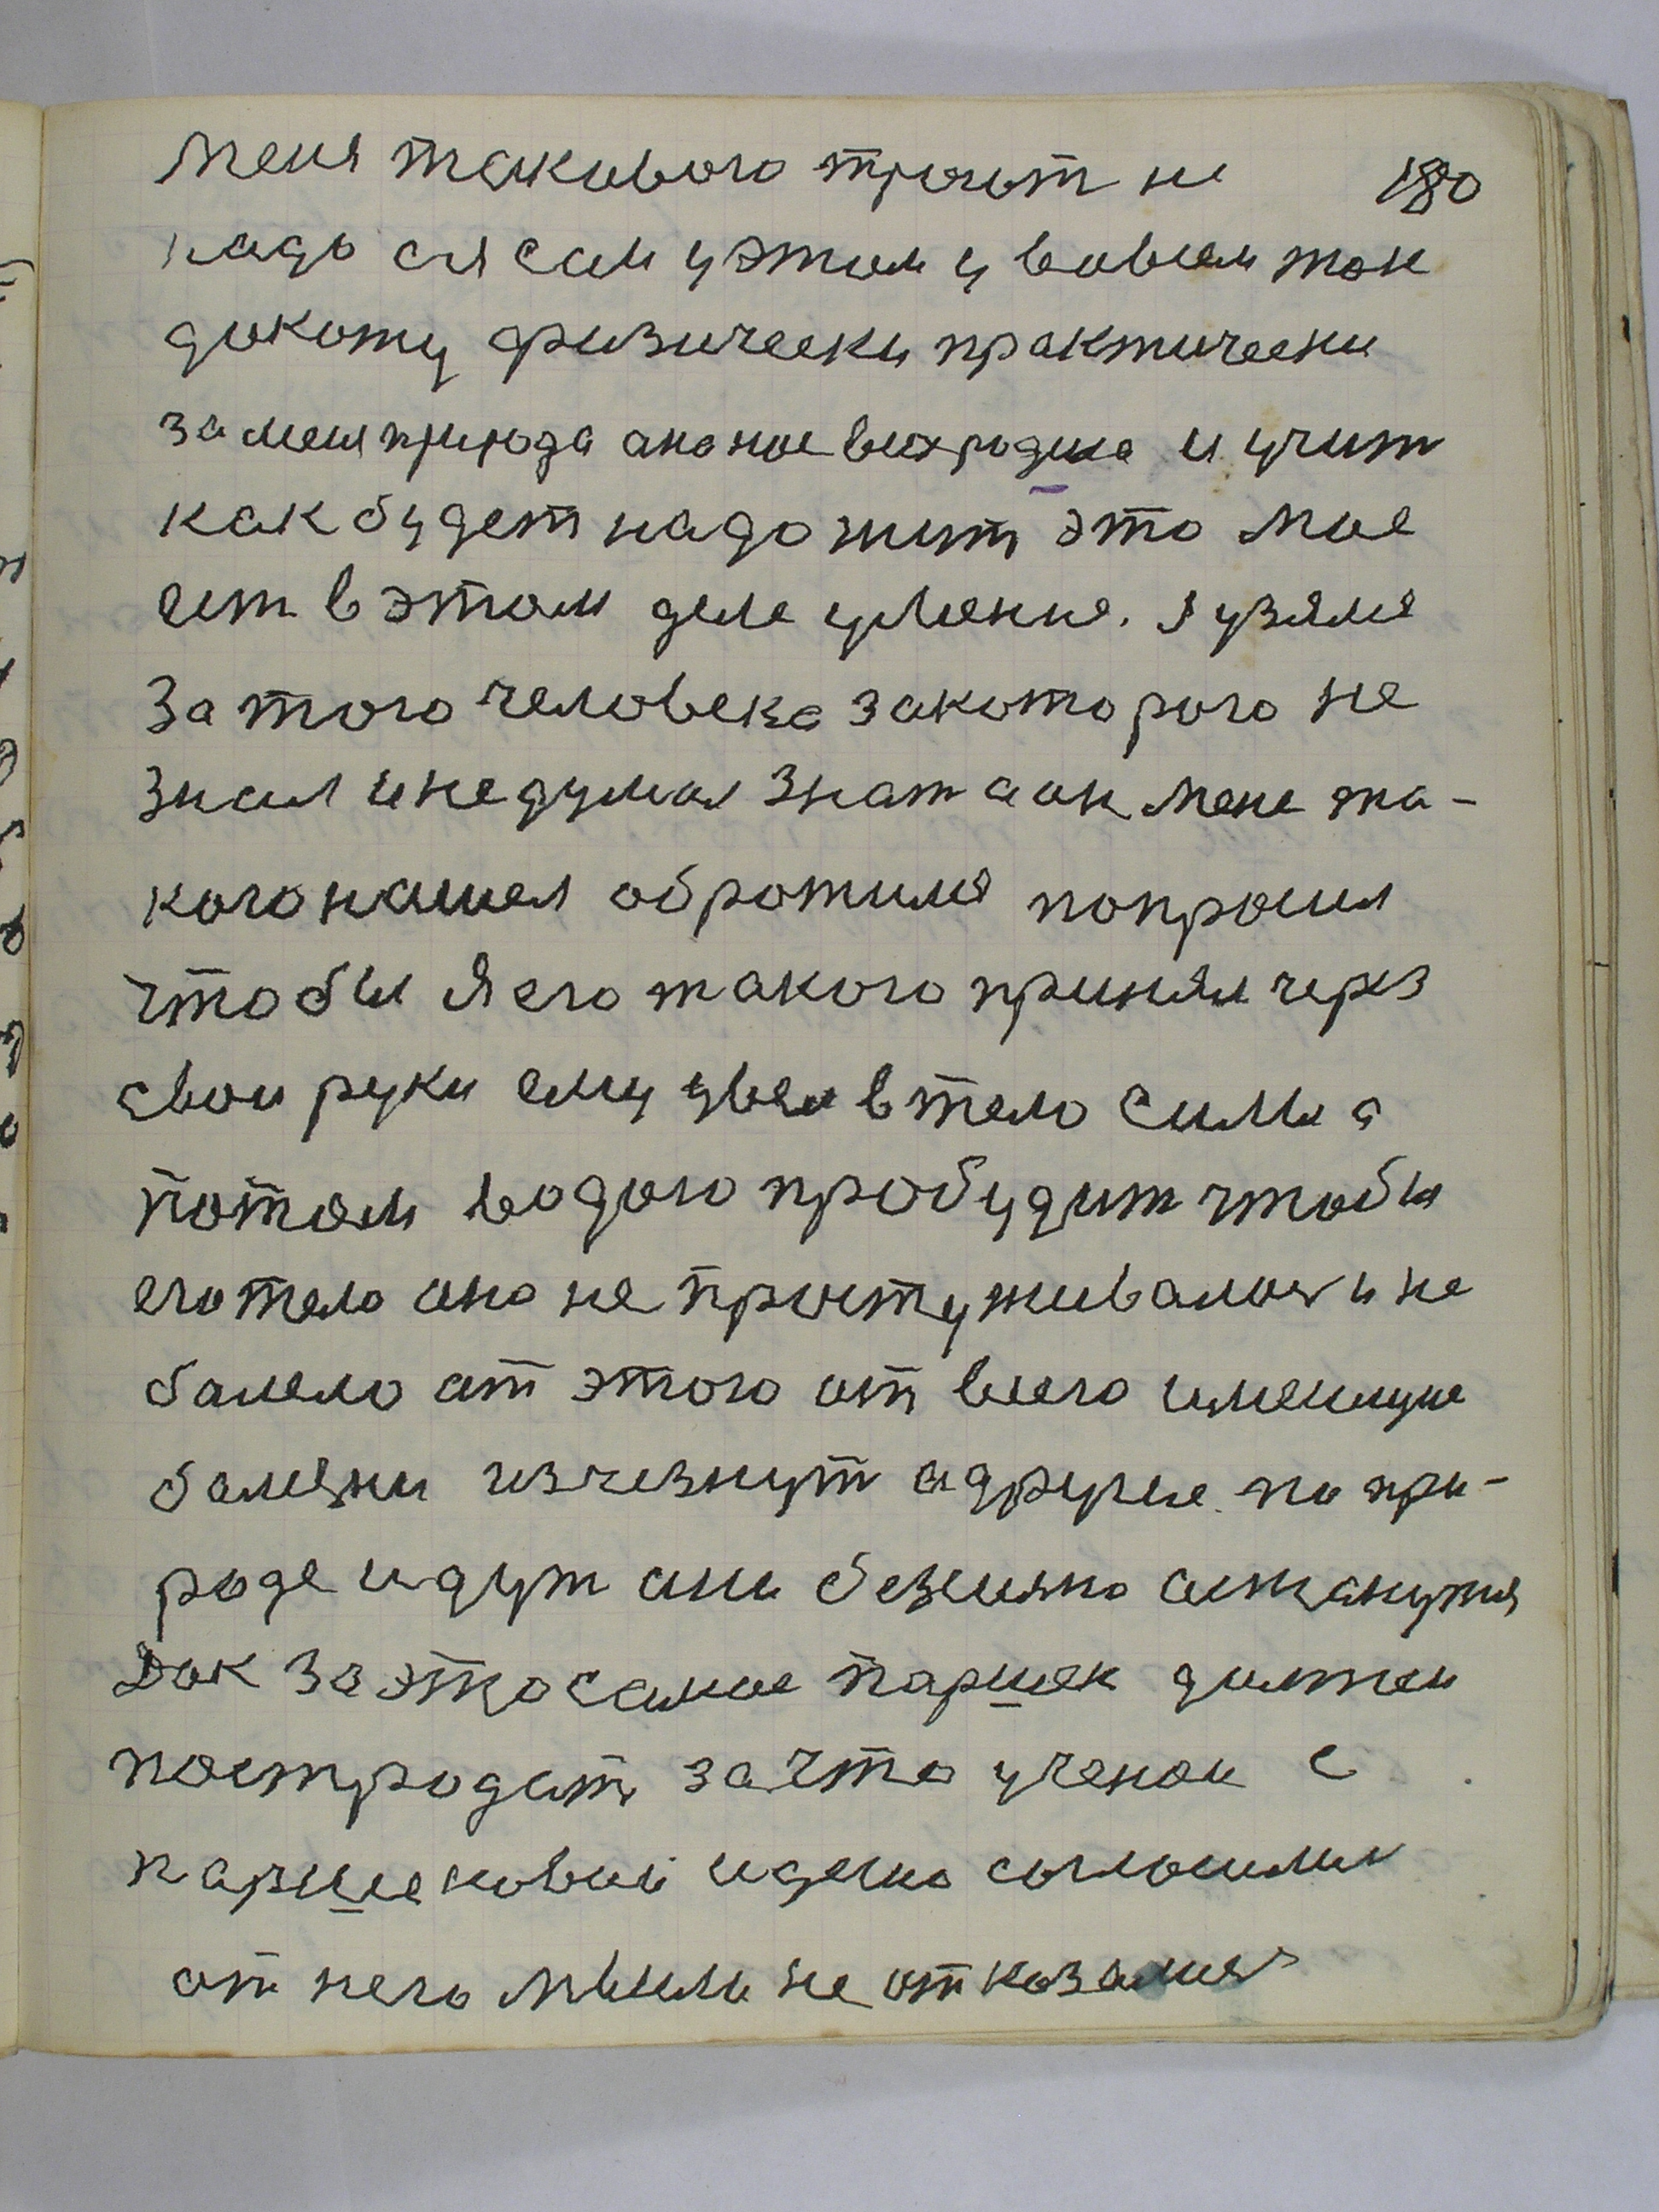 меня такового трогат не 180
надо ся сам у этом у вовсем так
докожу физически практически
за меня природа ана нас всех родила и учит
как будет надо жит это мое
ест в этом деле умение. я узялся
за того человека за которого не
знал и не думал знат а он мене та-
кого нашел обротился попросил
чтобы я его такого принял через
свои руки ему увел в тело силы а
потом водою пробудит чтобы
его тело оно не простуживалося и не
балело ат этого от всего имеющие
балезни изчезнут а другие по при-
роде идут ани безсилно астанутся
Дак за это самое паршек должен
пострадат за что ученаи с
паршековыи идеию согласилис
от него мысли не отказалися